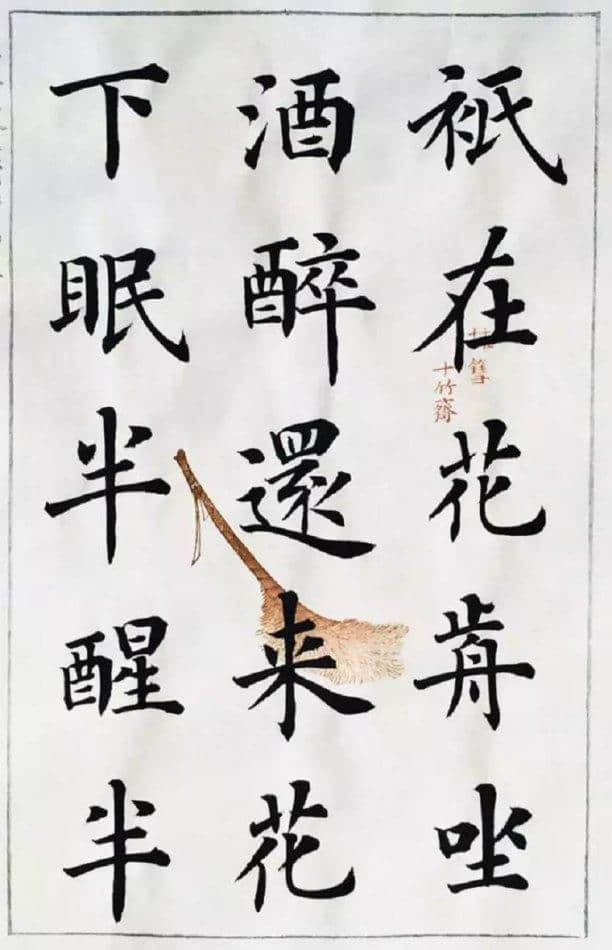 衹在花歬㘴
酒醉還来花
下眠半醒半
十竹齋